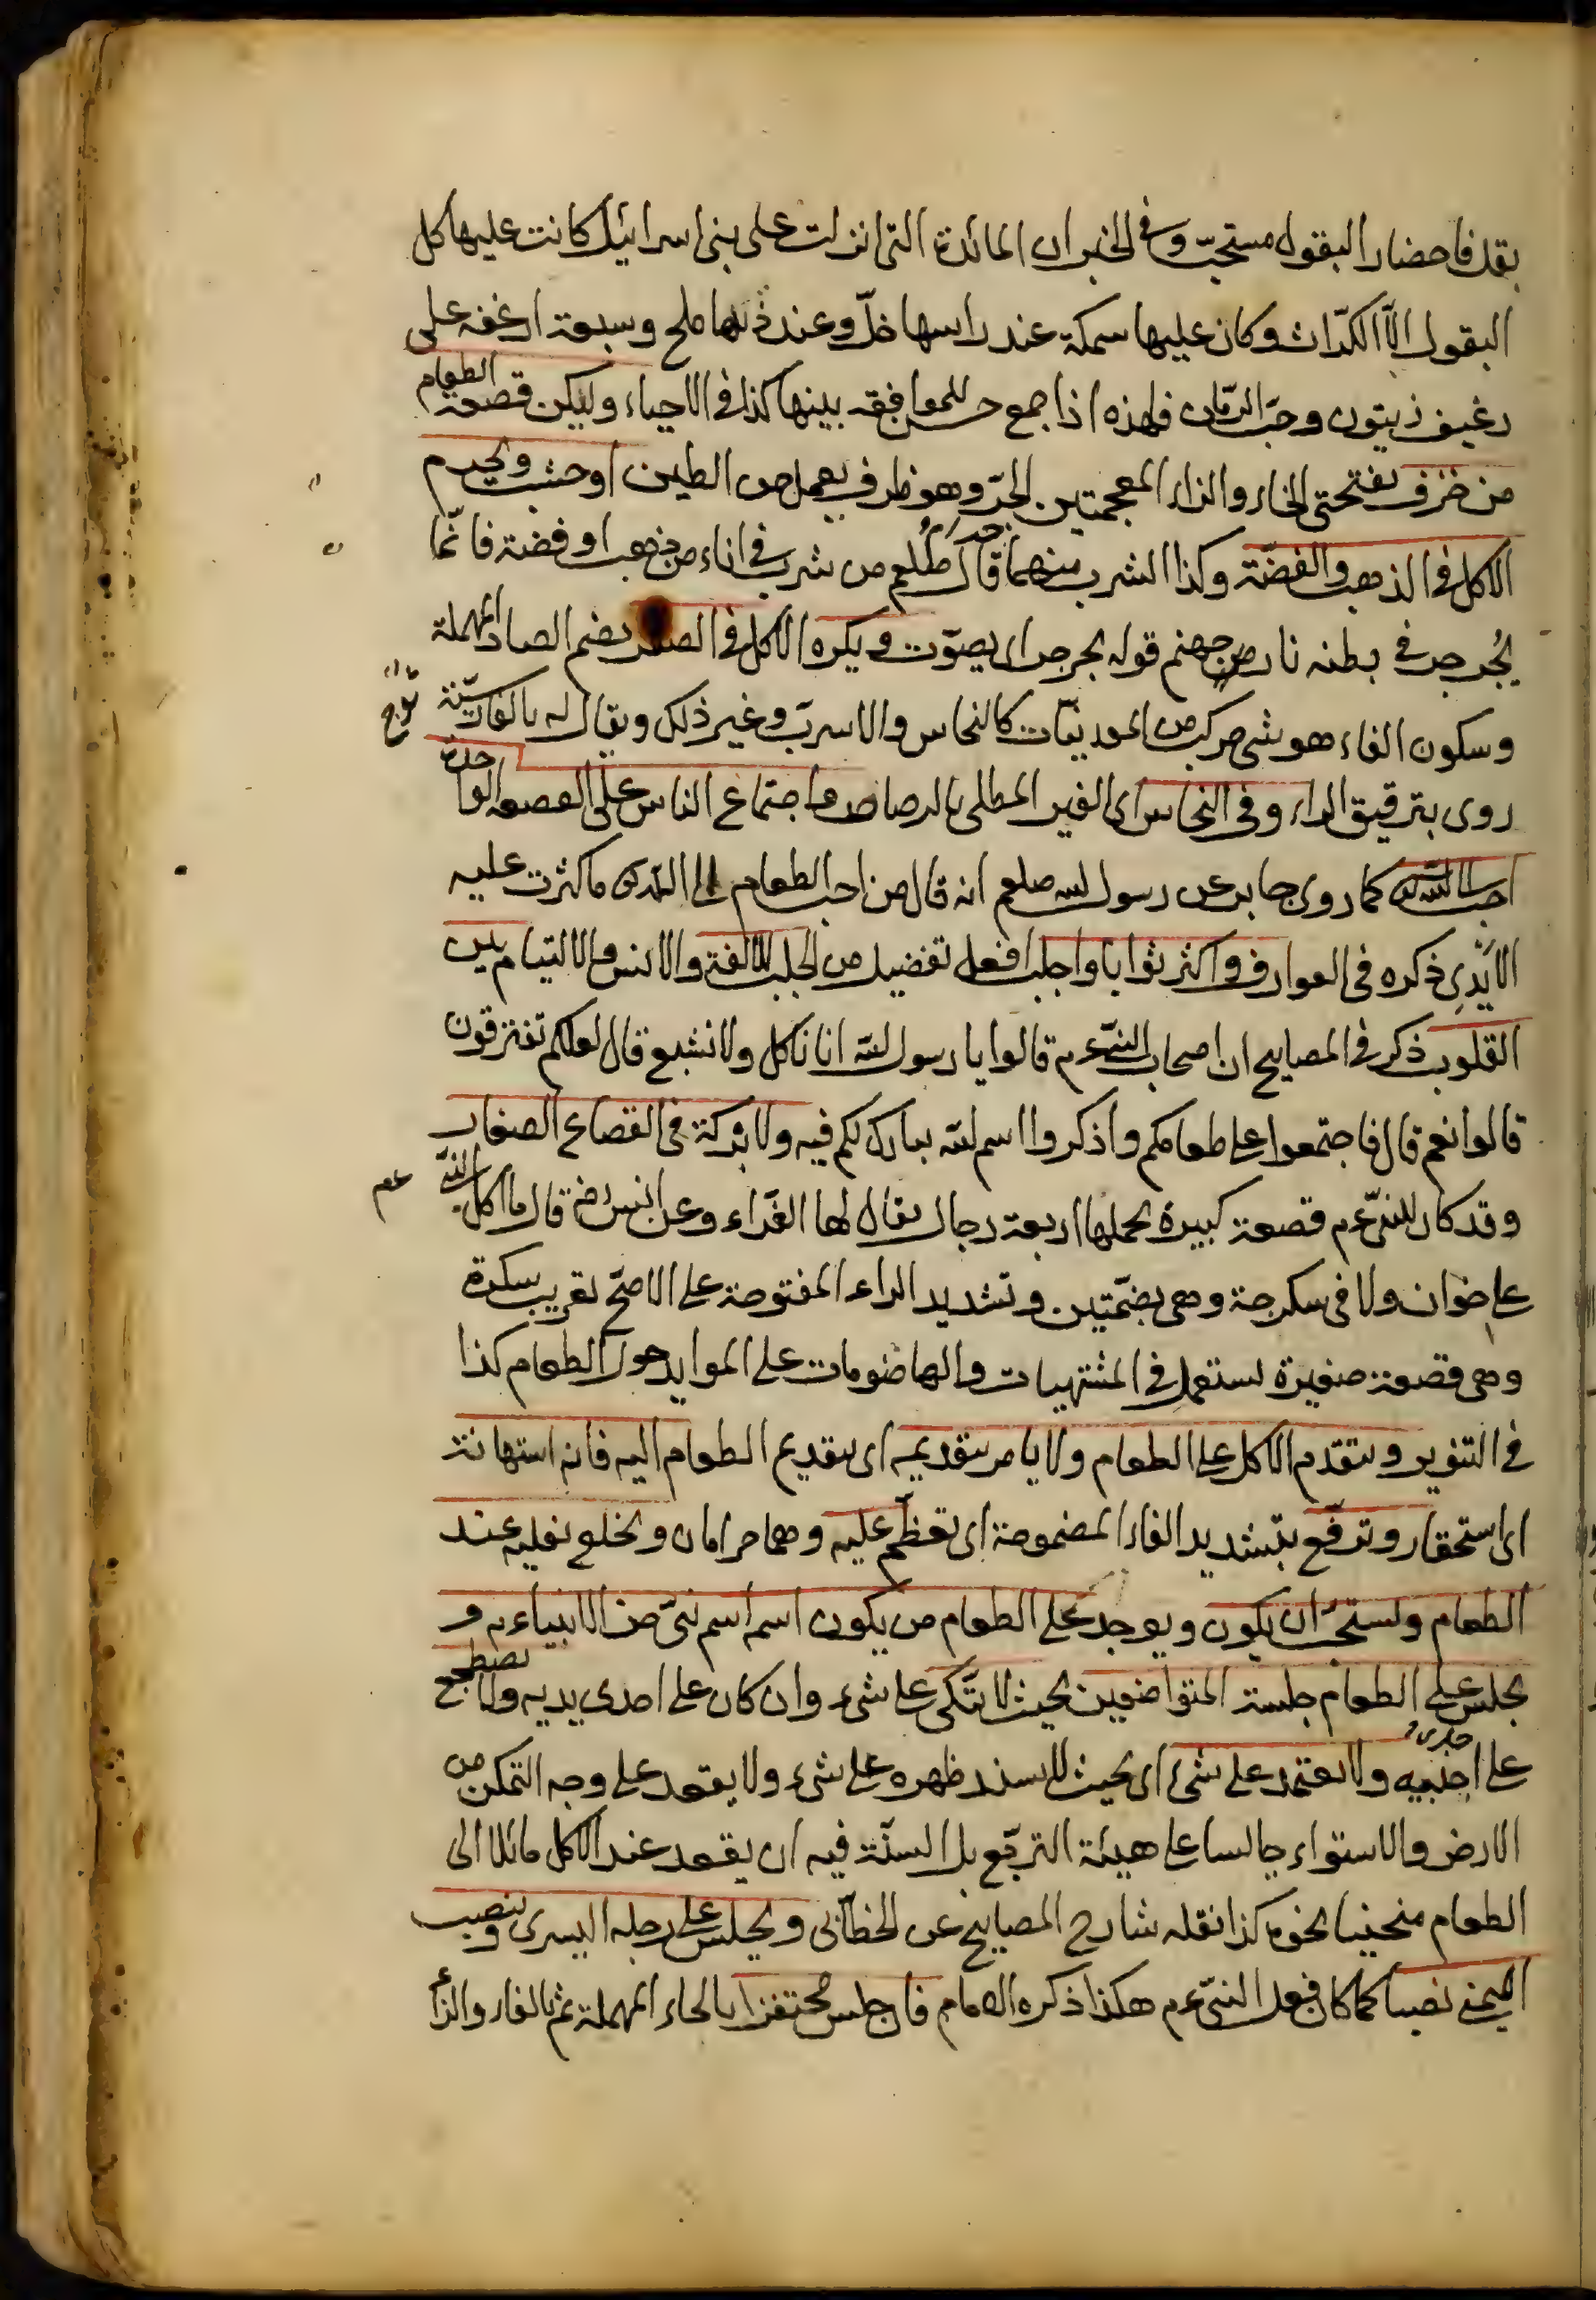 بقل فاحضار البقول مستحبّ وفي الخبر ان المائدة التى انزلت على بنى اسرائيل كانت عليها كل
البقول الّا الكرّاث وكان عليها سمكة عند راسها خلّ وعند ذنبها ملح وسبعة ارغفه على
رغيف زيتون وحبّ الرّمان فهذه اذا جمع حسن للموافقه بينها كذا في الاحياء وليكن قصعة الطعام
من خزف بفتحتى الخاء والزاء المعجمتين الجرّ وهو ظرف يعمل من الطين او خشب ويحرم
الاكل في الذهب والفضّة وكذا الشرب منهما قال صلعم من شرب في اناء من ذهب او فضة فانّما
يُجرجر في بطنه نار من جهنم قوله يجرجر اى يصوّت ويكره الاكل في الصفر بضم الصاد المهملة
وسكون الفاء هو شى مركب من المعدنيّات كالنحاس والاسربّ وغير ذلك ويقال له بالفارسيّة
روى بترقيق الراء وفي النحاس اى الغير المطلى بالرصاص واجتماع الناس على القصعه الواحدة
احب الى الله كما روى جابر عن رسول الله صلعم انه قال من احب الطعام الى الله ما كثرت عليه
الايَدِى ذكره في العوارف واكثر ثوابا واجلب افعل تفضيل من الجلب للالفة والانس والالتيام بين
القلوب ذكر في المصابيح ان اصحاب النبىّ عم قالوا يا رسول الله انا ناكل ولا نشبع قال لعلكم تفترقون
قالوا نعم قال فاجتمعوا على طعامكم واذكروا اسم الله يبارك لكم فيه ولا بركة في القصاع الصغار
وقد كان للنبىّ عم قصعة كبيرة يحملها اربعة رجال يقال لها الغرّاء وعن انس رض قال ما اكل النبىّ عم
على خوان ولا في سكرجة وهى بضمّتين وتشديد الراء المفتوحة على الاصحّ تعريب سكرة
وهى قصعة صغيرة تستعمل في المشتهيات والهاضومات على الموايد حول الطعام كذا
في التنوير ويتقدم الاكل على الطعام ولا يامر بتقديمه اى بتقديم الطعام اليه فانه استهانة
اى استحقار وترفّع بتشديد الفاء المضمومة اى تعظّم عليه وهما حرامان ويخلع نعليه عند
الطعام ويستحبّ ان يكون ويوجد على الطعام من يكون اسمه اسم نبىّ من الانبياء عم و
يجلس على الطعام جلسة المتواضعين بحيث لا يتكى على شىء وان كان على احدى يديه ولا يضطجع
على احد جنبيه ولا يعتمد على شىء اى بحيث لا يسند ظهره على شىء ولا يقعد على وجه التمكن من
الارض والاستواء جالسا على هيئة التربّع بل السنّة فيه ان يقعد عند الاكل مائلا الى
الطعام منحنيا نحوه كذا نقله شارح المصابيح عن الخطّابى ويجلس على رجله اليسرى وينصب
اليمنى نصبا كما كان فعل النبىّ عم هكذا ذكره الامام فان جلس محتفزا بالحاء المهملة ثم بالفاء والزاء